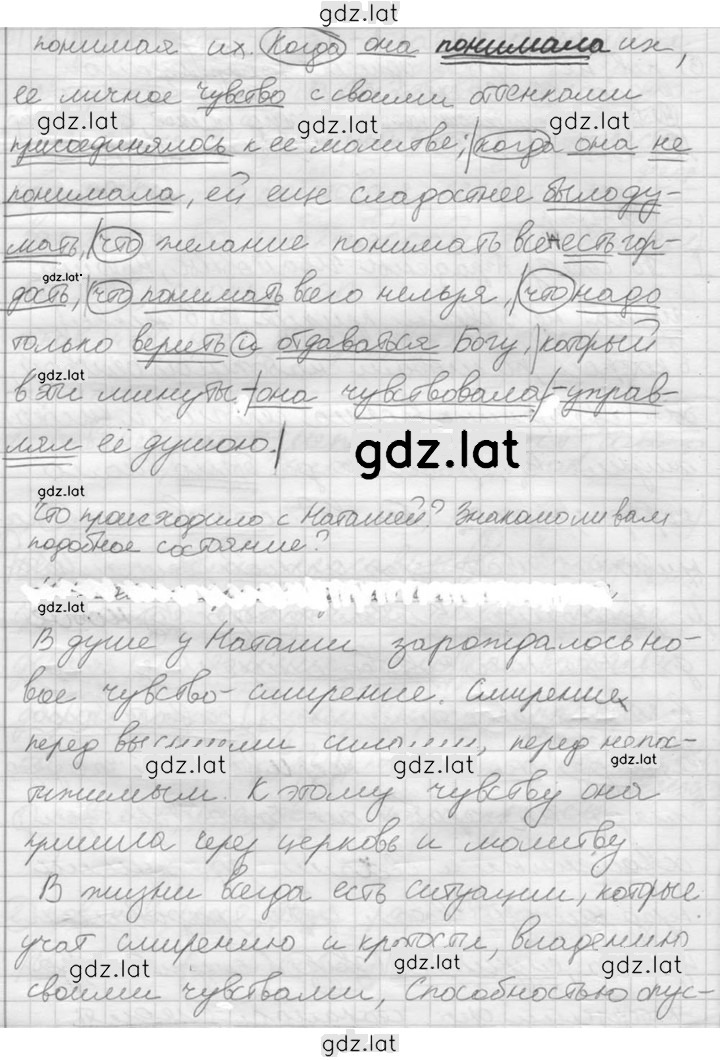 gdz.lat
понимая их. Когда она понимала их,
ее личное чувство с своими оттенками
gdz.lat gdz.lat
присоединялось к ее молитве; когда она не
понимала, ей еще сладостнее было ду-
мать, что желание понимать все есть гор-
gdz.lat
дость, что понимать всего нельзя, что надо
только верить и отдаваться Богу, который
gdz.lat
в эти минуты - она чувствовала - управ-
лял ее душою.
gdz.lat
gdz.lat
Что происходило с Наташей? Знакомо ли вам
подобное состояние?
gdz.lat
В душе у Наташи зарождалось но-
вое чувство - смирение. Смирение
перед высшими силами, перед непос-
gdz.lat gdz.lat gdz.lat
тижимым. К этому чувству она
пришла через церковь и молитву
В жизни всегда есть ситуации, которые
учат смирению и кротости, владению
gdz.lat gdz.lat gdz.lat
своими чувствами, способностью опус-
gdz.lat